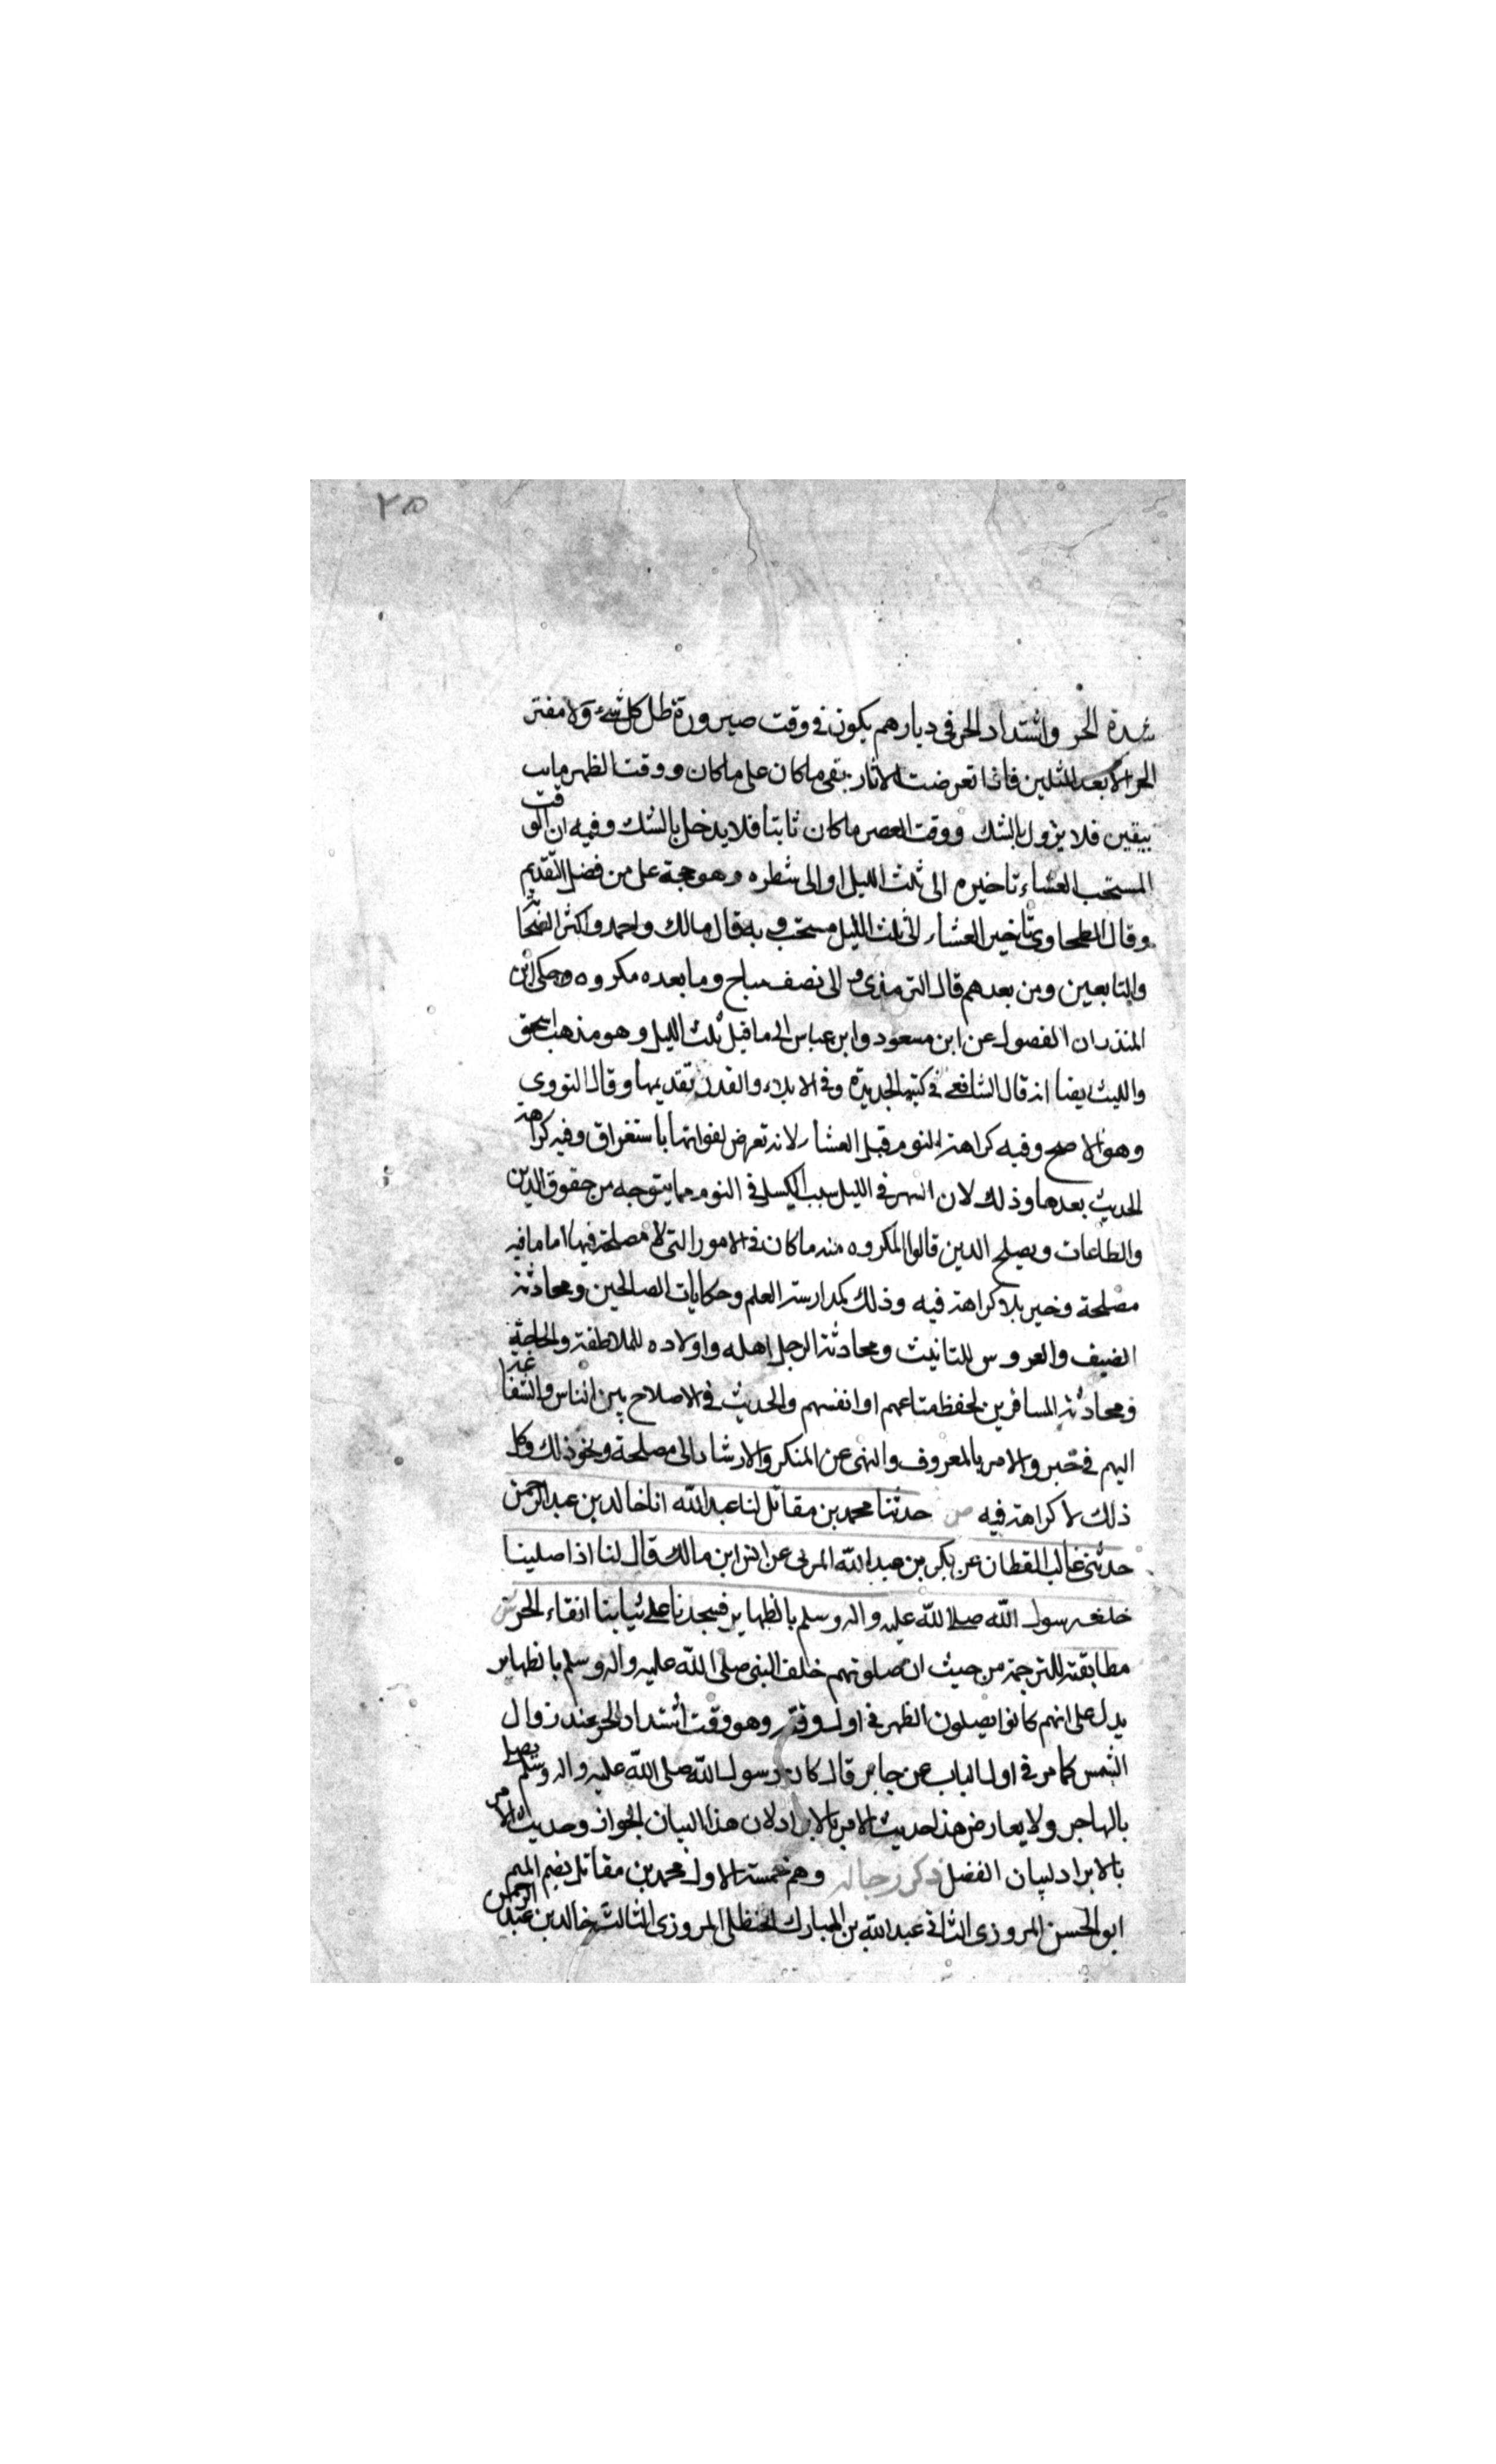 ٢٥
شدة الحر واشتداد الحر فى ديارهم يكون فى وقت صيرورة ظل كل شىء ولا مفتر
الحر الا بعد المثلين فاذا تعرضت الاثار بقى ماكان على ماكان ووقت الظهر مابت
بيقين فلا يزول بالشك ووقت العصر ماكان ثابتا فلا يدخل بالشك وفيه ان الوقت
المستحب العشاء تاخيره الى ثلث الليل او الى شطره وهو حجة على من فضل التقديم
وقال الطحاوى تاخير العشاء الى ثلث الليل مستحب وبه قال مالك واحمد واكثر الصحابة
والتابعين ومن بعدهم قال الترمذى و الى نصف مباح وما بعده مكروه وحكى ابن
المنذر ان الفصول عن ابن مسعود وابن عباس الى ماقبل ثلث الليل وهو مذهب اسحق
والليث ايضا انه قال الشافعى فى كتبه الجديدة وفى الاملاء والقديم تقديمها وقال النووى
وهو الاصح وفيه كراهة النوم قبل العشاء لانه تعرض لفواتها باستغراق وفيه كراهة
الحديث بعدها وذلك لان السهر فى الليل سبب الكسل فى النوم مما يتوجه من حقوق الدين
والطاعات ويصلح الدين قالوا المكروه منه ماكان فى الامور التى لا مصلحة فيها اما مافيه
مصلحة وخير بلا كراهة فيه وذلك كمدارسة العلم وحكايات الصالحين ومحادثة
الضيف والعروس للتانيث ومحادثة الرجل اهله واولاده للملاطفة والحاجة
ومحادثة المسافرين لحفظ متاعهم او انفسهم والحديث فى الاصلاح بين الناس والشفاعة
اليهم فى خير والامر بالمعروف والنهى عن المنكر والارشاد الى مصلحة ونحو ذلك وكل
ذلك لا كراهة فيه ص حدثنا محمد بن مقاتل لنا عبد الله انا خالد بن عبد الرحمن
حدثنى غالب القطان عن بكر بن عبد الله المزنى عن انس ابن مالك قال لنا اذا صلينا
خلف رسول الله صلى الله عليه واله وسلم بالظهاير فسجدنا على ثيابنا اتقاء الحر ش
مطابقته للترجمة من حيث ان صلوتهم خلف النبى صلى الله عليه واله وسلم بالظهاير
يدل على انهم كانوا يصلون الظهر فى اول وقته وهو وقت اشتداد الحر عند زوال
الشمس كما مر فى اول الباب عن جابر قال كان رسول الله صلى الله عليه واله وسلم يصلى
بالهاجر ولا يعارض هذا حديث الامر بالابراد لان هذا البيان الجواز وحديث الامر
بالابراد لبيان الفضل ذكر رجاله وهم خمسة الاول محمد بن مقاتل بضم الميم
ابو الحسن المروزى الثانى عبد الله بن المبارك الحنظلى المروزى الثالث خالد بن عبد الرحمن